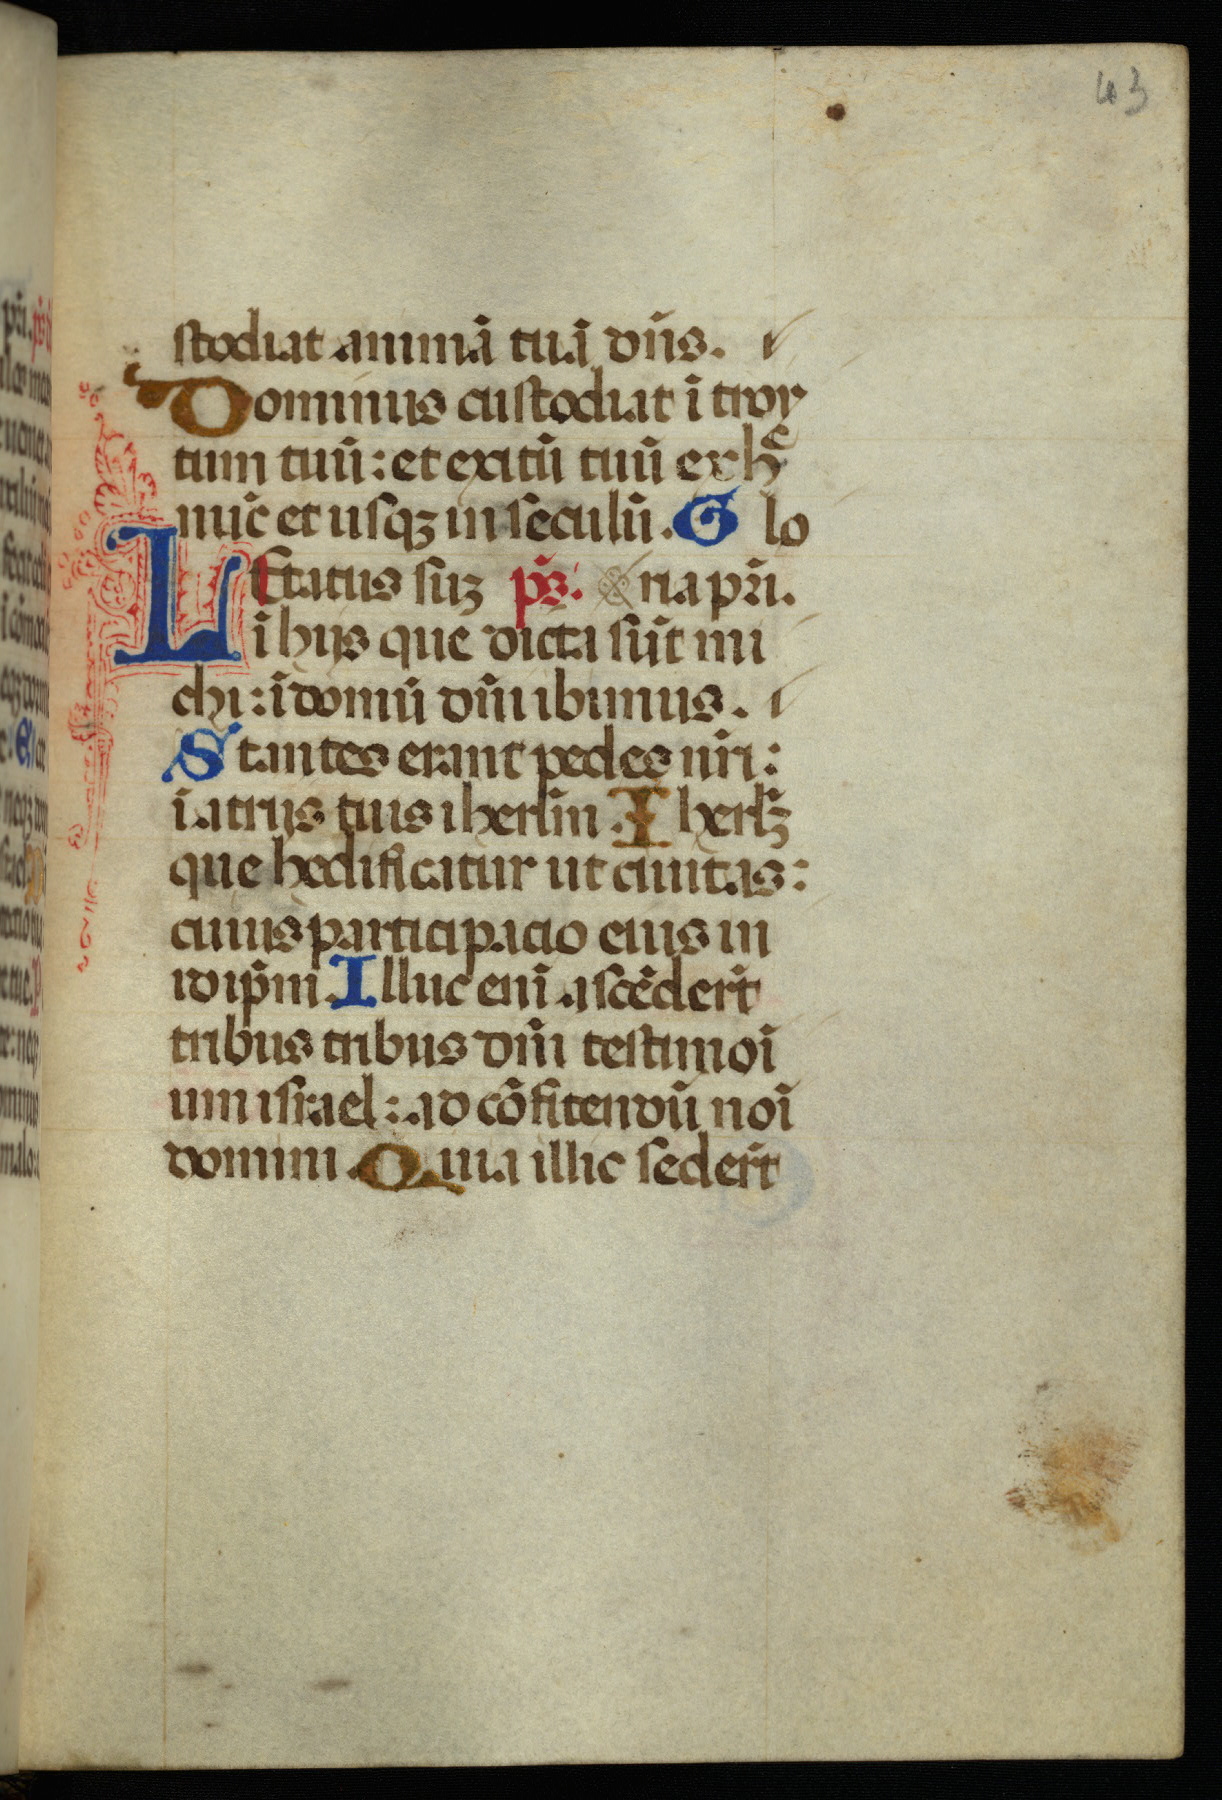 43
stodiat animā tuā dn̄s.
Dominus custodiat ī troy
tum tuū: et exitū tuū ex hͨ
nūc et usqꝫ in seculū. G lo
Letatus suꝫ ps̄. ria pr̄i.
ī hijs que dicta sūt mi
chi: ī domū dn̄i ibimus.
Stantes erant pedes nr̄i:
ī atrijs tuis iherl̄m. Iherl̄ꝫ
que hedificatur ut ciuitas:
cuius participacio eius in
idip̄m. Illuc enī ascēder̄t
tribus tribus dn̄i testimoī
um israel: ad cōfitendū noī
domini. Quia illic seder̄t